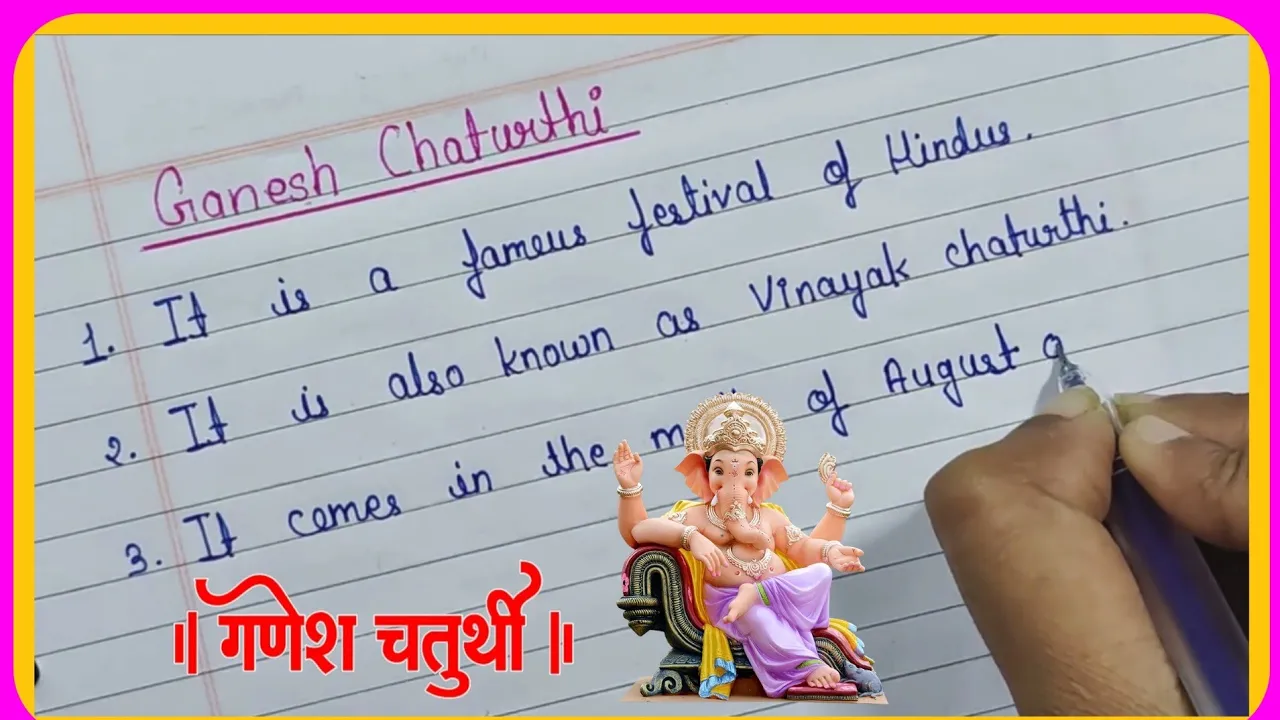 Ganesh Chaturthi
1. It is a famous festival of Hindus.
2. It is also known as Vinayak chaturthi.
3. It comes in the of August
॥ गणेश चतुर्थी ॥